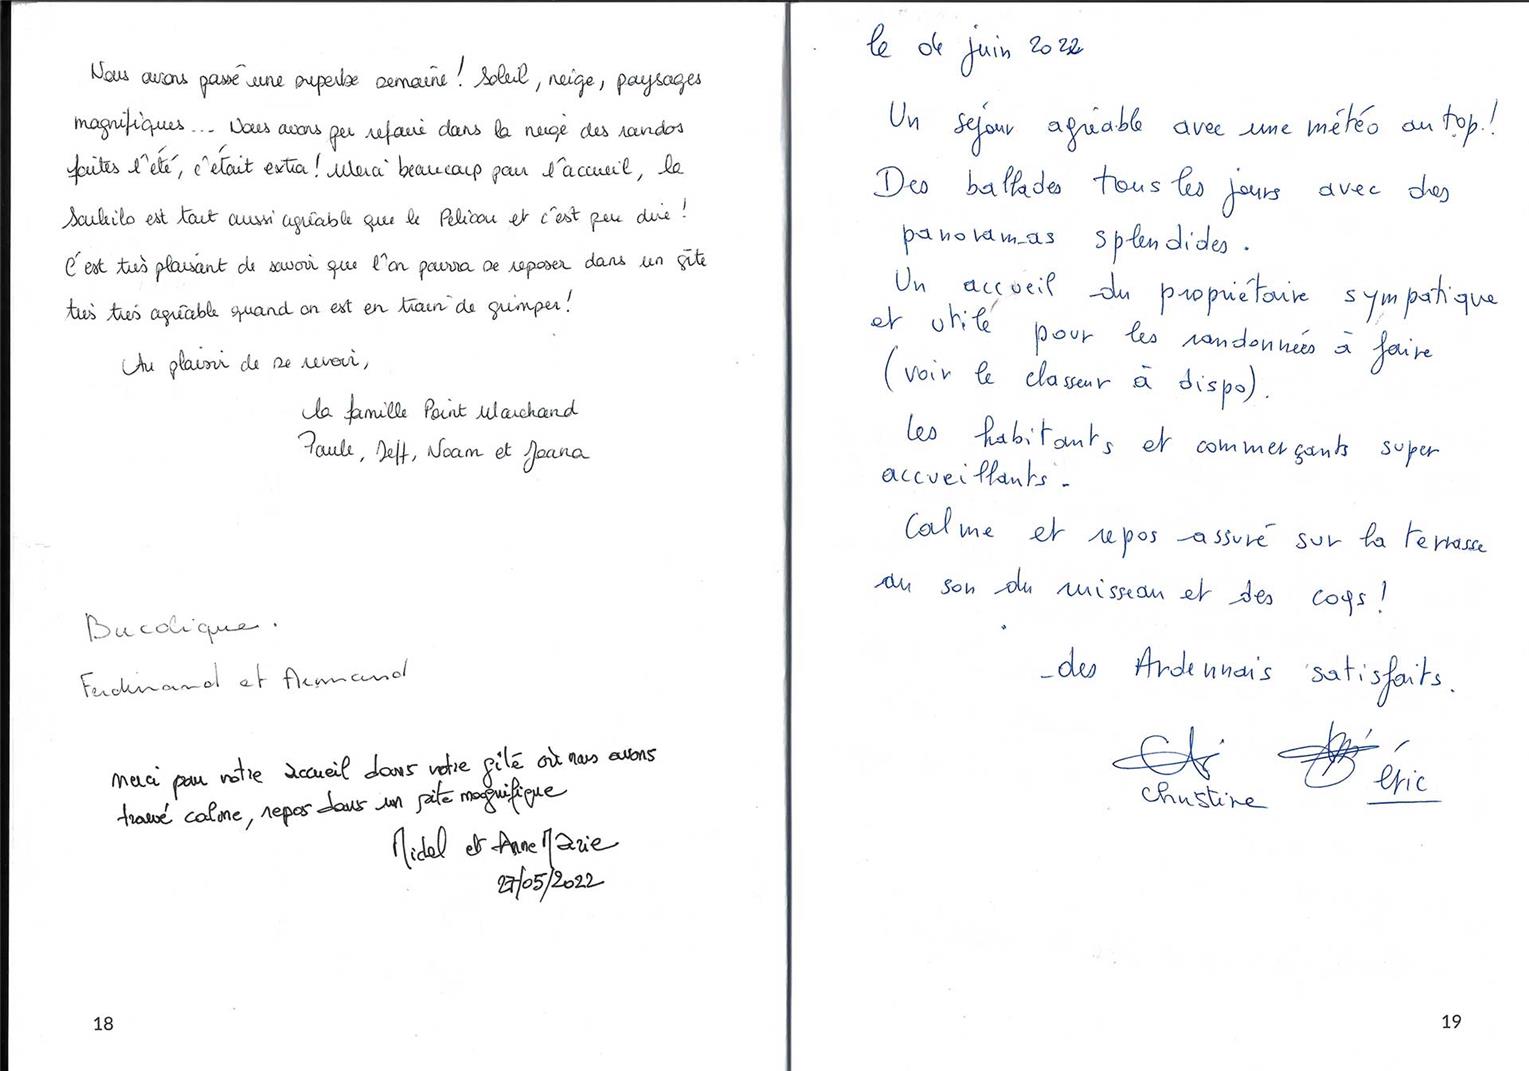 Nous avons passé une superbe semaine ! Soleil, neige, paysages
magnifiques... Nous avons pu refaire dans la neige des randos
faites l'été, c'était extra ! Merci beaucoup pour l'accueil, le
est tout aussi agréable que le Pélicou et c'est peu dire !
C'est très plaisant de savoir que l'on pourra se reposer dans un gîte
très très agréable quand on est en train de grimper !
Au plaisir de se revoir,
La famille Point Marchand
Paule, Jeff, Noam et Joana
Bucolique.
Ferdinand et Armand
Merci pour votre accueil dans votre gîte où nous avons
trouvé calme, repos dans un site magnifique
et Anne Marie
27/05/2022
18
le 04 juin 2022
Un séjour agréable avec une météo au top !
Des ballades tous les jours avec des
panoramas splendides.
Un accueil du propriétaire sympatique
et utile pour les randonnées à faire
(voir le classeur à dispo).
Les habitants et commerçants super
accueillants.
Calme et repos assuré sur la terrasse
au son du ruisseau et des coqs !
des Ardennais satisfaits.
Christine
éric
19